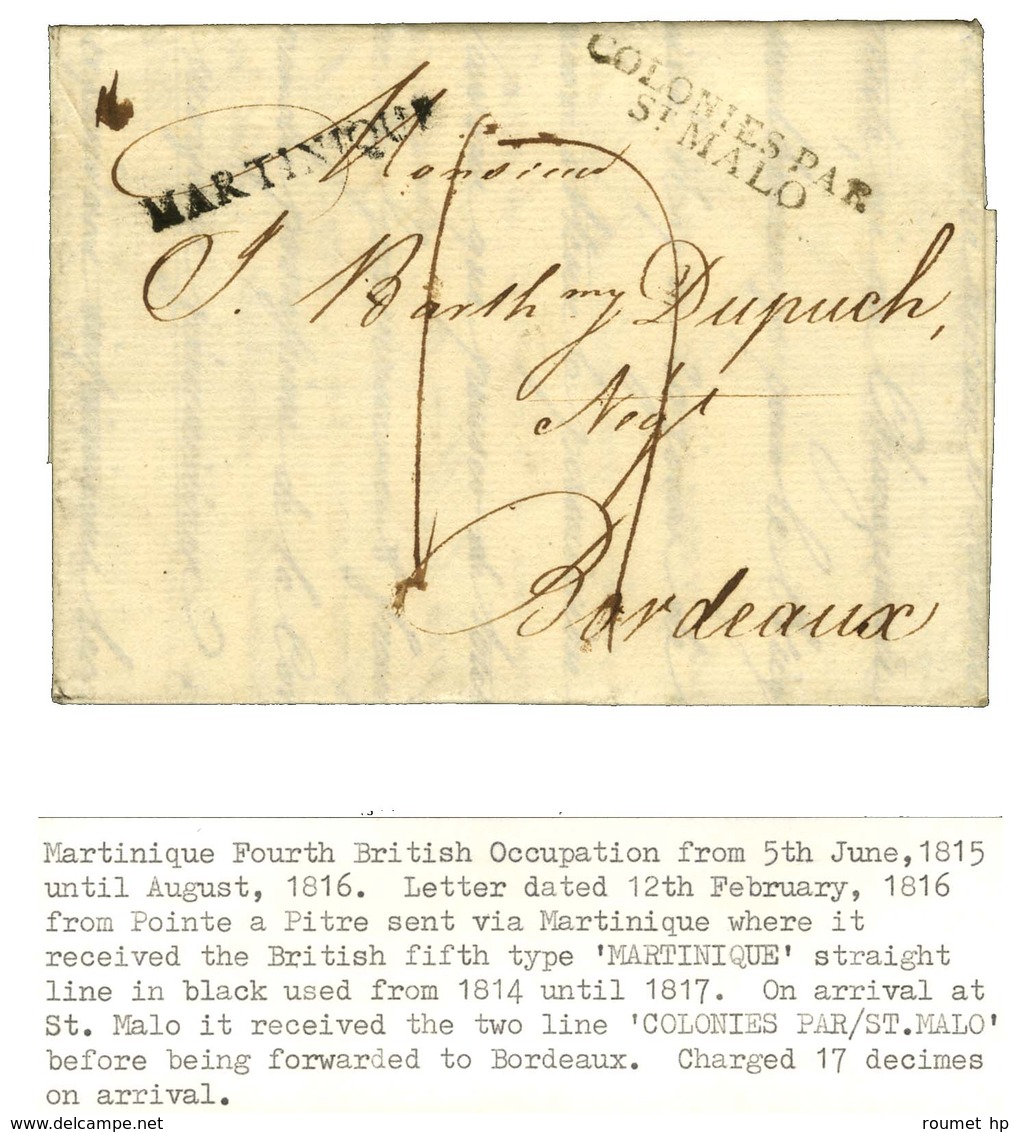 COLONIES PAR
ST MALO
MARTINIQUE
Monsieur
J. Barthmy Dupuch,
Negt
Bordeaux
17
Martinique Fourth British Occupation from 5th June,1815
until August, 1816.  Letter dated 12th February, 1816
from Pointe a Pitre sent via Martinique where it
received the British fifth type 'MARTINIQUE' straight
line in black used from 1814 until 1817.  On arrival at
St. Malo it received the two line 'COLONIES PAR/ST.MALO'
before being forwarded to Bordeaux.  Charged 17 decimes
on arrival.
www.delcampe.net
roumet hp